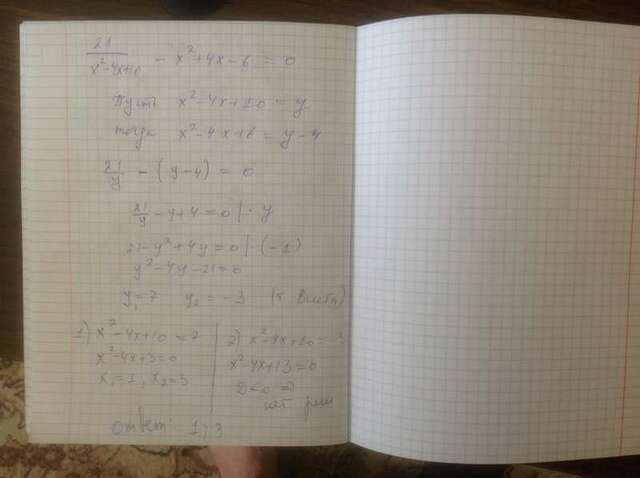 21/(x²-4x+10) - x²+4x-6=0
Пусть x²-4x+10=y
тогда x²-4x+6=y-4
21/y - (y-4)=0
21/y - y+4=0 | · y
21-y²+4y=0 | · (-1)
y²-4y-21=0
y₁=7 y₂=-3 (т Виета)
1) x²-4x+10=7
x²-4x+3=0
x₁=1, x₂=3
2) x²-4x+10=-3
x²-4x+13=0
D<0 ⇒
нет реш
Ответ: 1; 3